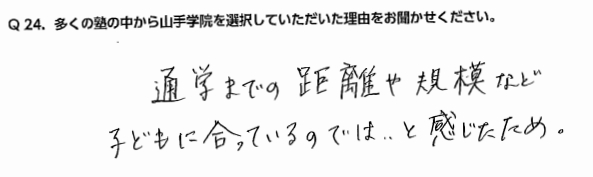 Q 24. 多くの塾の中から山手学院を選択していただいた理由をお聞かせください。
通学までの距離や規模など
子どもに合っているのでは‥と感じたため。